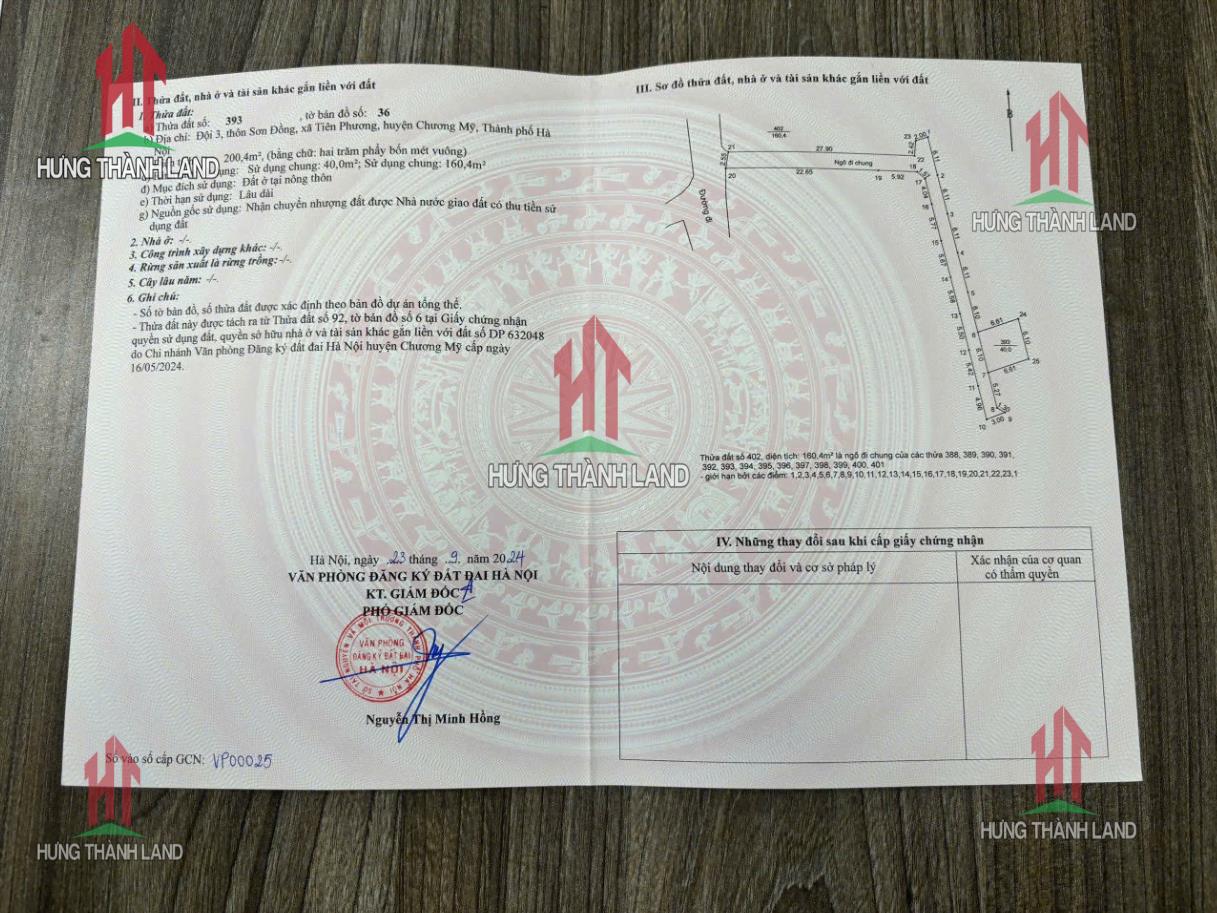 II. Thửa đất, nhà ở và tài sản khác gắn liền với đất
1. Thửa đất:
Thửa đất số: 393 , tờ bản đồ số: 36
b) Địa chỉ: Đội 3, thôn Sơn Đồng, xã Tiên Phương, huyện Chương Mỹ, Thành phố Hà
Nội
200,4m², (bằng chữ: hai trăm phẩy bốn mét vuông)
dụng: Sử dụng chung: 40,0m²; Sử dụng chung: 160,4m²
đ) Mục đích sử dụng: Đất ở tại nông thôn
e) Thời hạn sử dụng: Lâu dài
g) Nguồn gốc sử dụng: Nhận chuyển nhượng đất được Nhà nước giao đất có thu tiền sử
dụng đất
2. Nhà ở: -/-.
3. Công trình xây dựng khác: -/-.
4. Rừng sản xuất là rừng trồng:-/-.
5. Cây lâu năm: -/-.
6. Ghi chú:
- Số tờ bản đồ, số thửa đất được xác định theo bản đồ dự án tổng thể.
- Thửa đất này được tách ra từ Thửa đất số 92, tờ bản đồ số 6 tại Giấy chứng nhận
quyền sử dụng đất, quyền sở hữu nhà ở và tài sản khác gắn liền với đất số DP 632048
do Chi nhánh Văn phòng Đăng ký đất đai Hà Nội huyện Chương Mỹ cấp ngày
16/05/2024.
Hà Nội, ngày 23 tháng 9 năm 2024
VĂN PHÒNG ĐĂNG KÝ ĐẤT ĐAI HÀ NỘI
KT. GIÁM ĐỐC
PHÓ GIÁM ĐỐC
SỞ TÀI NGUYÊN VÀ MÔI TRƯỜNG THÀNH PHỐ HÀ NỘI
VĂN PHÒNG
ĐĂNG KÝ ĐẤT ĐAI
HÀ NỘI
Nguyễn Thị Minh Hồng
Số vào sổ cấp GCN: VP00025
III. Sơ đồ thửa đất, nhà ở và tài sản khác gắn liền với đất
B
402
160,4
21 27.90 23 2.00 1
2.55 2.42 6.11
Ngõ đi chung
20 22.65 19 5.92 18 22
17 1.57 2
Đường đi
4.04 6.11
16 3
5.77 6.11
15 4
5.67 6.11
14 5
5.58 6.10
13 6 6.61 24
5.50 6.10 393 6.10
40,0
12 7 6.61 25
5.42 5.27
11
4.96 8
10 3.00 9
Thửa đất số 402, diện tích: 160,4m² là ngõ đi chung của các thửa 388, 389, 390, 391,
392, 393, 394, 395, 396, 397, 398, 399, 400, 401
- giới hạn bởi các điểm: 1,2,3,4,5,6,7,8,9,10,11,12,13,14,15,16,17,18,19,20,21,22,23,1
IV. Những thay đổi sau khi cấp giấy chứng nhận
Nội dung thay đổi và cơ sở pháp lý
Xác nhận của cơ quan
có thẩm quyền
HƯNG THÀNH LAND
HƯNG THÀNH LAND
HƯNG THÀNH LAND
HƯNG THÀNH LAND
HƯNG THÀNH LAND